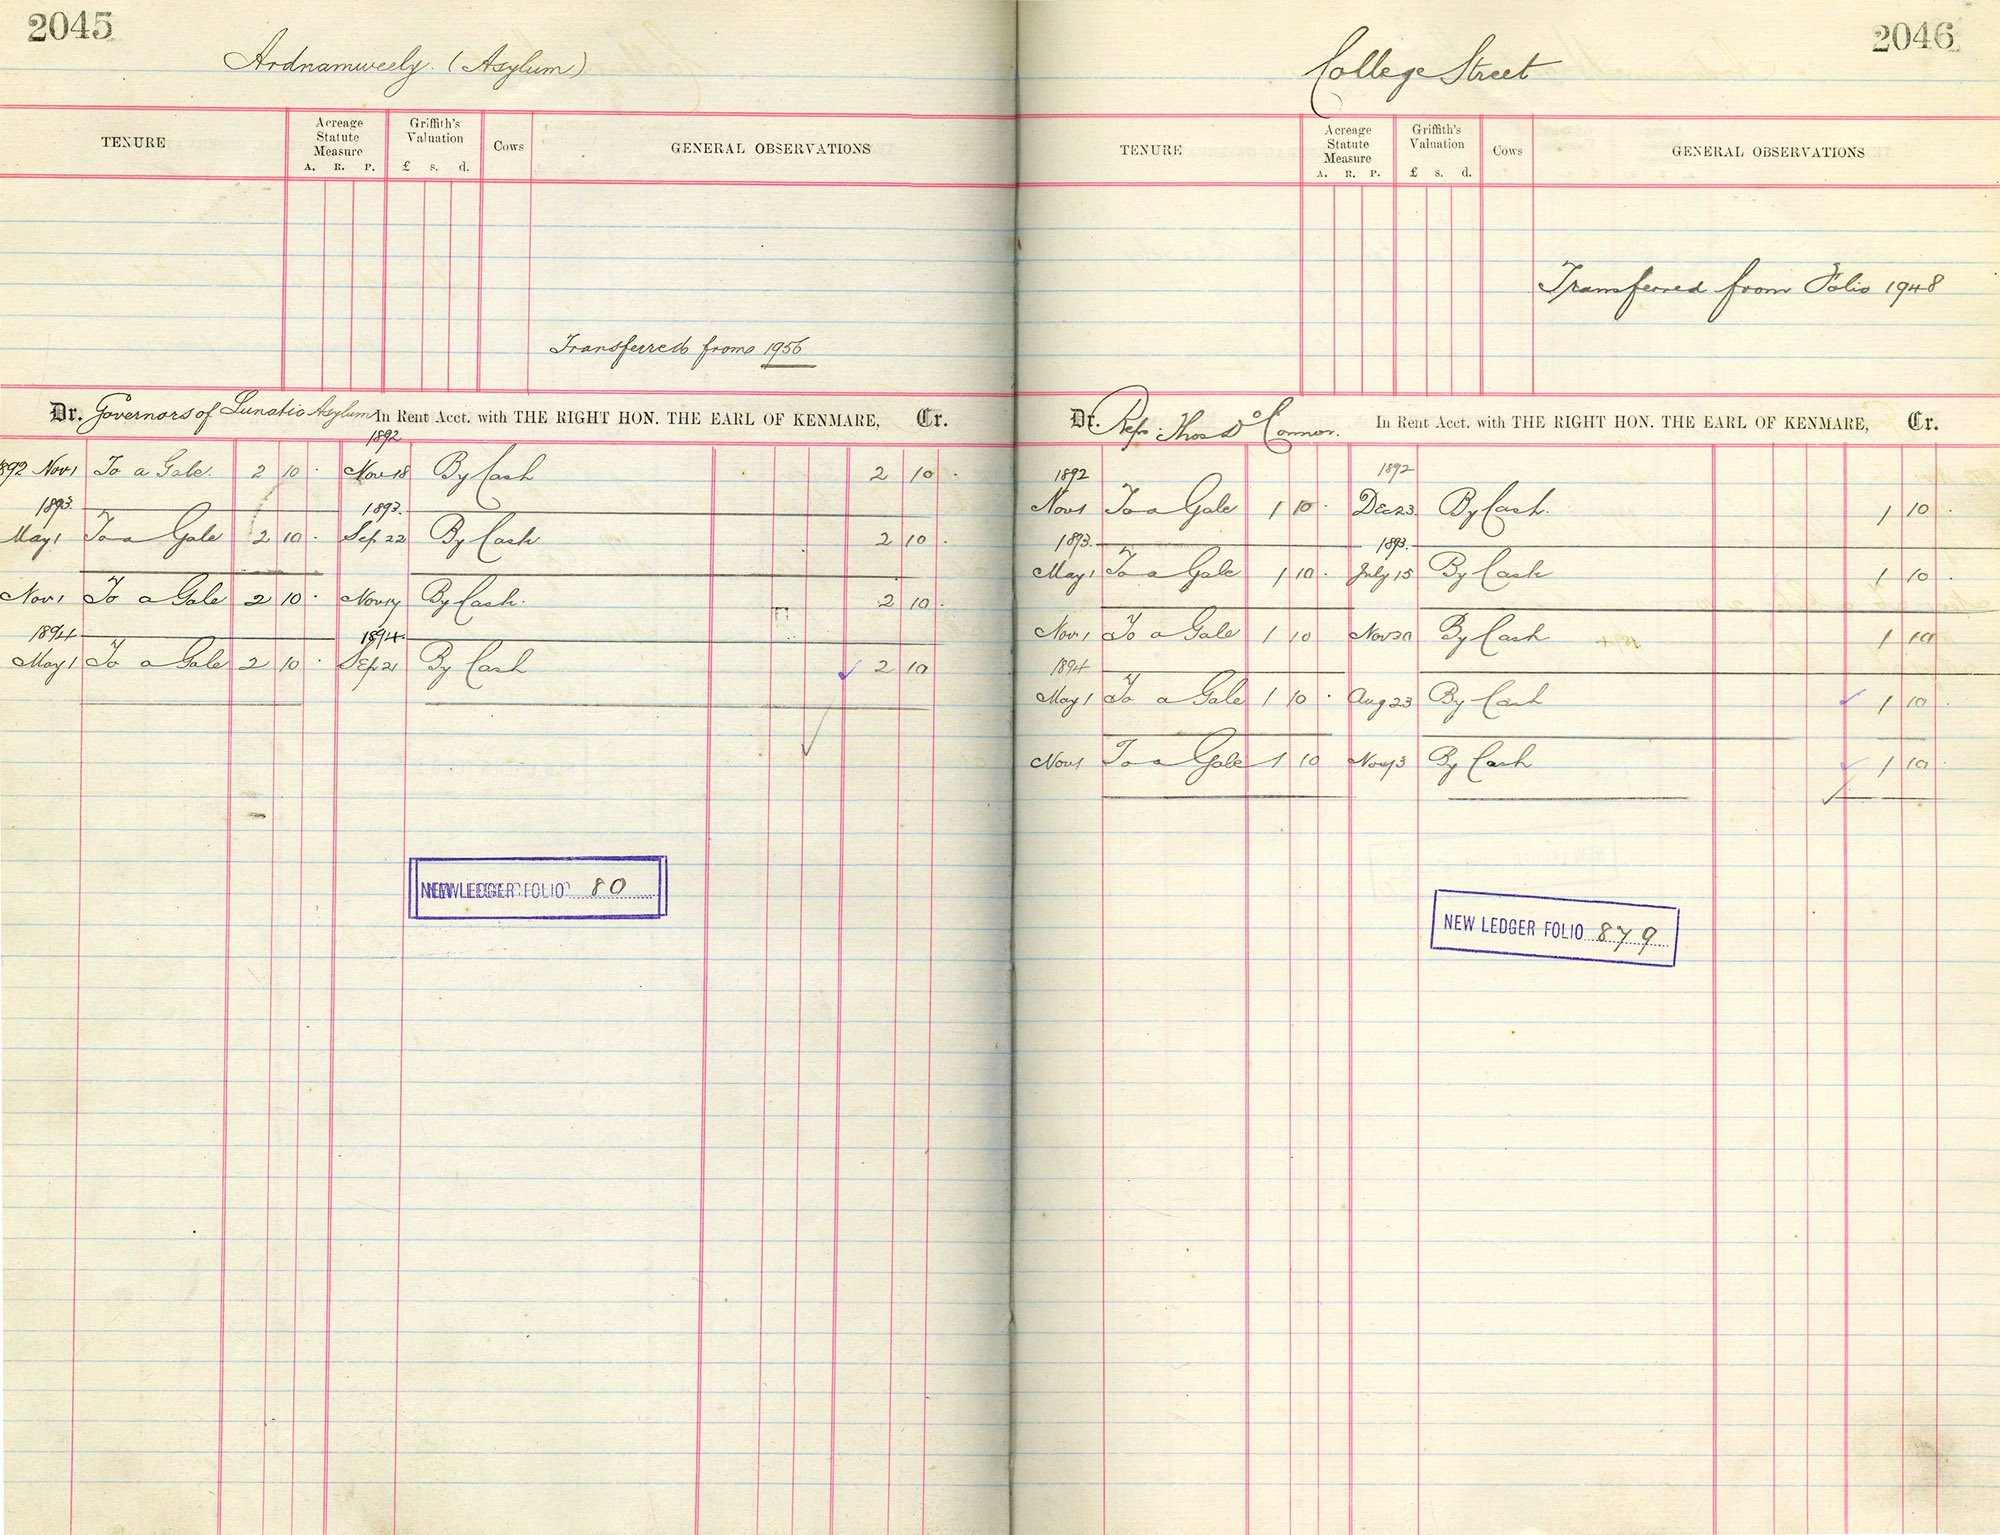 2045
Ardnamweely. (Asylum)
TENURE Acreage Statute Measure A. R. P. Griffith's Valuation £ s. d. Cows GENERAL OBSERVATIONS
Transferred from 1956
Dr. Governors of Lunatic Asylum In Rent Acct. with THE RIGHT HON. THE EARL OF KENMARE, Cr.
1892
1892 Nov 1 To a Gale. 2 10 . Nov 18 By Cash 2 10 .
1893. 1893.
May 1 To a Gale 2 10 . Sep 22 By Cash 2 10 .
Nov 1 To a Gale 2 10 . Nov 14 By Cash. 2 10 .
1894 1894.
May 1 To a Gale 2 10 . Sep 21 By Cash 2 10
NEW LEDGER FOLIO 80
2046
College Street
TENURE Acreage Statute Measure A. R. P. Griffith's Valuation £ s. d. Cows GENERAL OBSERVATIONS
Transferred from Folio 1948
Dr. Reps. Thos D O'Connor. In Rent Acct. with THE RIGHT HON. THE EARL OF KENMARE, Cr.
1892 1892
Nov 1 To a Gale 1 10 . Dec 23 By Cash. 1 10 .
1893. 1893.
May 1 To a Gale 1 10 . July 15 By Cash 1 10 .
Nov 1 To a Gale 1 10 Nov 20 By Cash 1 10
1894
May 1 To a Gale 1 10 . Aug 23 By Cash 1 10 .
Nov 1 To a Gale 1 10 Nov 13 By Cash 1 10 .
NEW LEDGER FOLIO 879